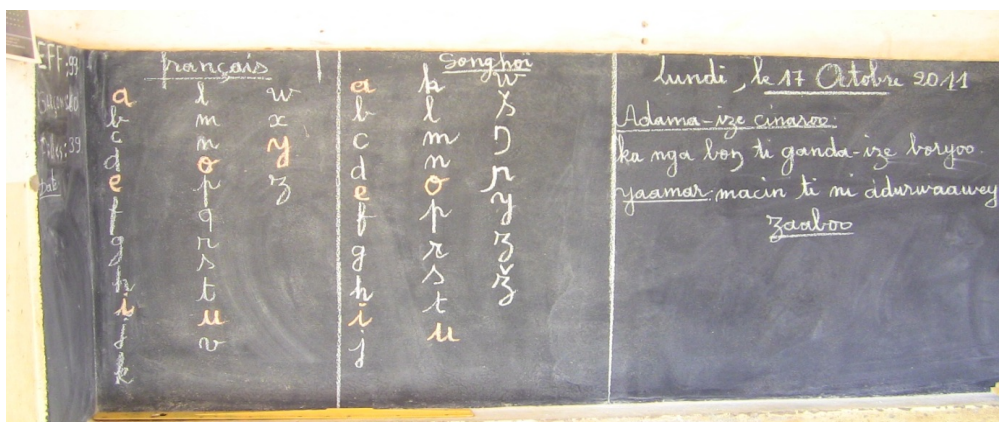 EFF:99
Filles:39
français
a
b
c
d
e
f
g
h
i
j
k
l
m
n
o
p
q
r
s
t
u
v
w
x
y
z
Songhoi
a
b
c
d
e
f
g
h
i
j
k
l
m
n
o
p
r
s
t
u
w
š
ŋ
ɲ
y
z
ž
lundi, le 17 Octobre 2011
Adama-ize cinaroo:
ka nga boŋ ti ganda-ize boryoo.
yaamar: macin ti ni
zaaboo